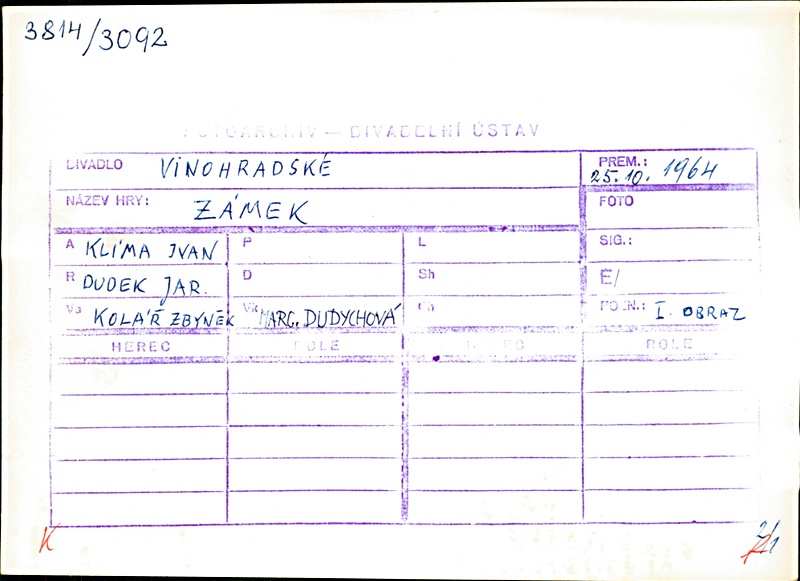 3814/3092
FOTOARCHIV — DIVADELNÍ ÚSTAV
DIVADLO VINOHRADSKÉ PREM.: 25.10. 1964
NÁZEV HRY: ZÁMEK FOTO
A KLÍMA IVAN P L SIG.:
R DUDEK JAR. D Sh Ě/
Vs KOLÁŘ ZBYNĚK Vk MARG. DUDYCHOVÁ Ch POZN.: I. OBRAZ
HEREC ROLE HEREC ROLE
K